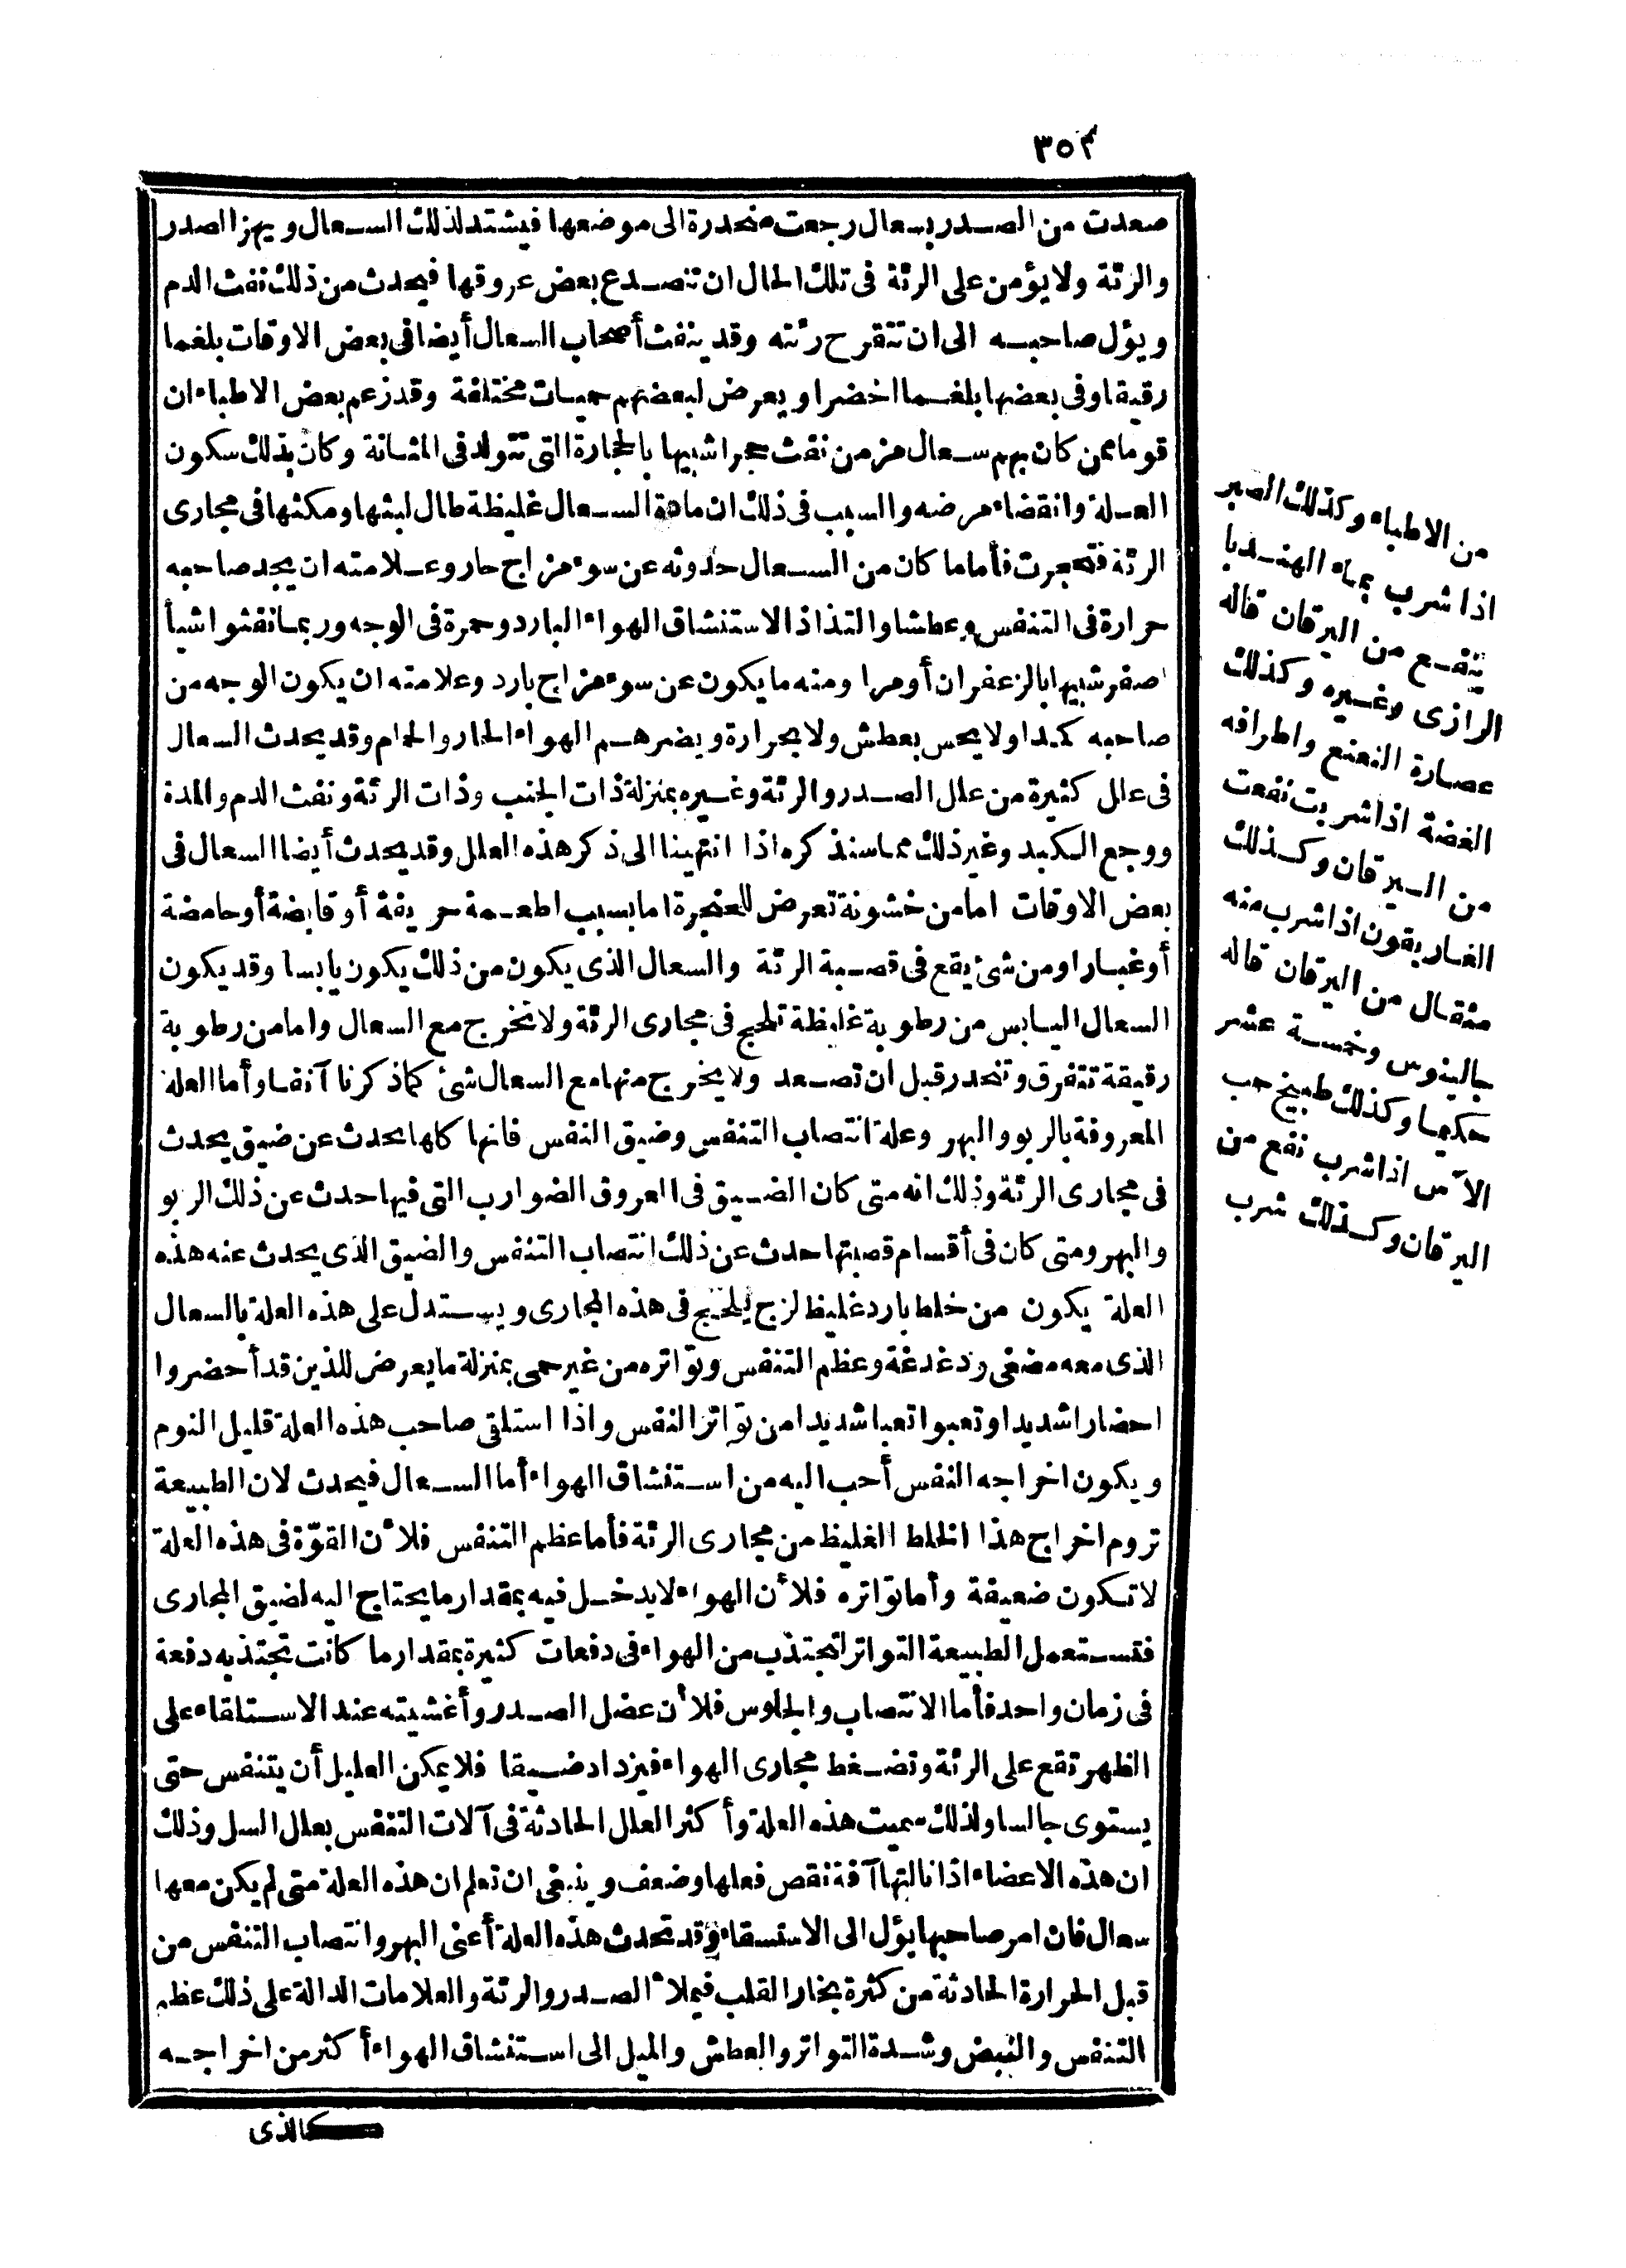 ٣٥٢
صعدت من الصدر بسعال رجعت منحدرة الى موضعها فيشتد لذلك السعال ويهز الصدر
والرئة ولا يؤمن على الرئة فى تلك الحال ان تنصدع بعض عروقها فيحدث من ذلك نفث الدم
ويؤل صاحبه الى ان تتقرح رئته وقد ينفث أصحاب السعال أيضا فى بعض الاوقات بلغما
رقيقا وفى بعضها بلغما اخضر او يعرض لبعضهم حميات مختلفة وقد زعم بعض الاطباء ان
قوما ممن كان بهم سعال مزمن نفث حجرا شبيها بالحجارة التى تتولد فى المثانة وكان بذلك سكون
العلة وانقضاء مرضه والسبب فى ذلك ان مادة السعال غليظة طال لبثها ومكثها فى مجارى
الرئة فتحجرت فأما ما كان من السعال حدوثه عن سوء مزاج حار وعلامته ان يجد صاحبه
حرارة فى التنفس وعطشا والتذاذ الاستنشاق الهواء البارد وحمرة فى الوجه وربما نفثوا شيأ
اصفر شبيها بالزعفران أو مرا ومنه ما يكون عن سوء مزاج بارد وعلامته ان يكون الوجه من
صاحبه كمدا ولا يحس بعطش ولا بحرارة ويضرهم الهواء الحار والحمام وقد يحدث السعال
فى علل كثيرة من علل الصدر والرئة وغيره بمنزلة ذات الجنب وذات الرئة ونفث الدم والمدة
ووجع الكبد وغير ذلك مما سنذكره اذا انتهينا الى ذكر هذه العلل وقد يحدث أيضا السعال فى
بعض الاوقات اما من خشونة تعرض للحنجرة اما بسبب اطعمة حريفة أو قابضة أو حامضة
أو غبار او من شئ يقع فى قصبة الرئة والسعال الذى يكون من ذلك يكون يابسا وقد يكون
السعال اليابس من رطوبة غليظة تلحج فى مجارى الرئة ولا تخرج مع السعال واما من رطوبة
رقيقة تتفرق وتنحدر قبل ان تصعد ولا يخرج منها مع السعال شئ كما ذكرنا آنفا وأما العلة
المعروفة بالربو والبهر وعلة انتصاب التنفس وضيق النفس فانها كلها يحدث عن ضيق يحدث
فى مجارى الرئة وذلك انه متى كان الضيق فى العروق الضوارب التى فيها حدث عن ذلك الربو
والبهر ومتى كان فى أقسام قصبتها حدث عن ذلك انتصاب التنفس والضيق الذى يحدث عنه هذه
العلة يكون من خلط بارد غليظ لزج يلحج فى هذه المجارى ويستدل على هذه العلة بالسعال
الذى معه مضغى ودغدغة وعظم التنفس وتواتره من غير حمى بمنزلة ما يعرض للذين قد أحضروا
احضارا شديدا وتعبوا تعبا شديدا من تواتر النفس واذا استلقى صاحب هذه العلة قليل النوم
ويكون اخراجه النفس أحب اليه من استنشاق الهواء أما السعال فيحدث لان الطبيعة
تروم اخراج هذا الخلط الغليظ من مجارى الرئة فأما عظم التنفس فلأن القوّة فى هذه العلة
لا تكون ضعيفة وأما تواتره فلأن الهواء لا يدخل فيه بمقدار ما يحتاج اليه لضيق المجارى
فتستعمل الطبيعة التواتر لتجتذب من الهواء فى دفعات كثيرة بمقدار ما كانت تجتذبه دفعة
فى زمان واحد فأما الانتصاب والجلوس فلأن عضل الصدر وأغشيته عند الاستلقاء على
الظهر تقع على الرئة وتضغط مجارى الهواء فيزداد ضيقا فلا يمكن العليل أن يتنفس حتى
يستوى جالسا ولذلك سميت هذه العلة وأكثر العلل الحادثة فى آلات التنفس بعلل السل وذلك
ان هذه الاعضاء اذا نالتها آفة نقص فعلها وضعف وينبغى ان تعلم ان هذه العلة متى لم يكن معها
سعال فان امر صاحبها يؤل الى الاستسقاء وقد تحدث هذه العلة أعنى البهر وانتصاب التنفس من
قبل الحرارة الحادثة من كثرة بخار القلب فيملأ الصدر والرئة والعلامات الدالة على ذلك عظم
التنفس والنبض وشدة التواتر والعطش والميل الى استنشاق الهواء أكثر من اخراجه
كالذى
من الاطباء وكذلك الصبر
اذا شرب بماء الهندبا
ينفع من اليرقان قاله
الرازى وغيره وكذلك
عصارة النعنع واطرافه
الغضة اذا شربت نفعت
من اليرقان وكذلك
الغاريقون اذا شرب منه
مثقال من اليرقان قاله
جالينوس وخمسة عشر
حكيما وكذلك طبيخ حب
الآس اذا شرب نفع من
اليرقان وكذلك شرب